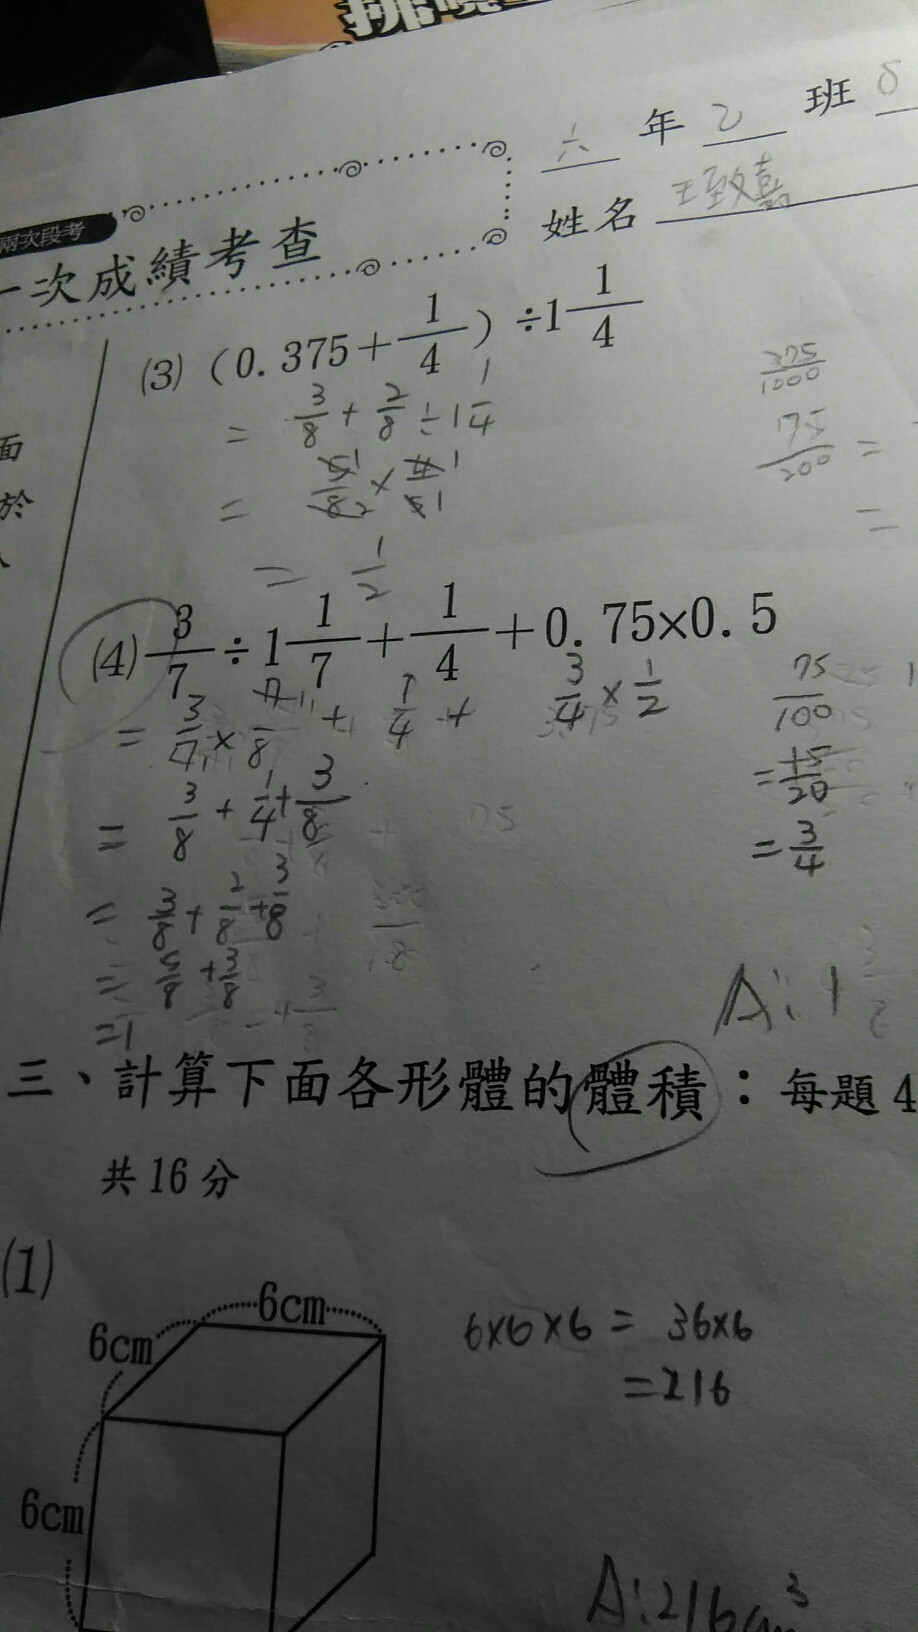 六 年 乙 班
姓名 王致嘉
兩次段考
一次成績考查
面
於
(3) (0.375+1/4) ÷1 1/4
= 3/8 + 2/8 ÷ 1 1/4
= 5/8 × 4/5
= 1/2
375/1000
75/200 =
=
(4) 3/7 ÷1 1/7 + 1/4 +0.75×0.5
= 3/7 × 7/8 + 1/4 + 3/4 × 1/2
= 3/8 + 1/4 + 3/8
= 3/8 + 2/8 + 3/8
= 5/8 + 3/8
=1
75/100
= 15/20
= 3/4
A:1
三、計算下面各形體的體積:每題4
共16分
(1)
6cm
6cm
6cm
6×6×6 = 36×6
=216
A:216cm³